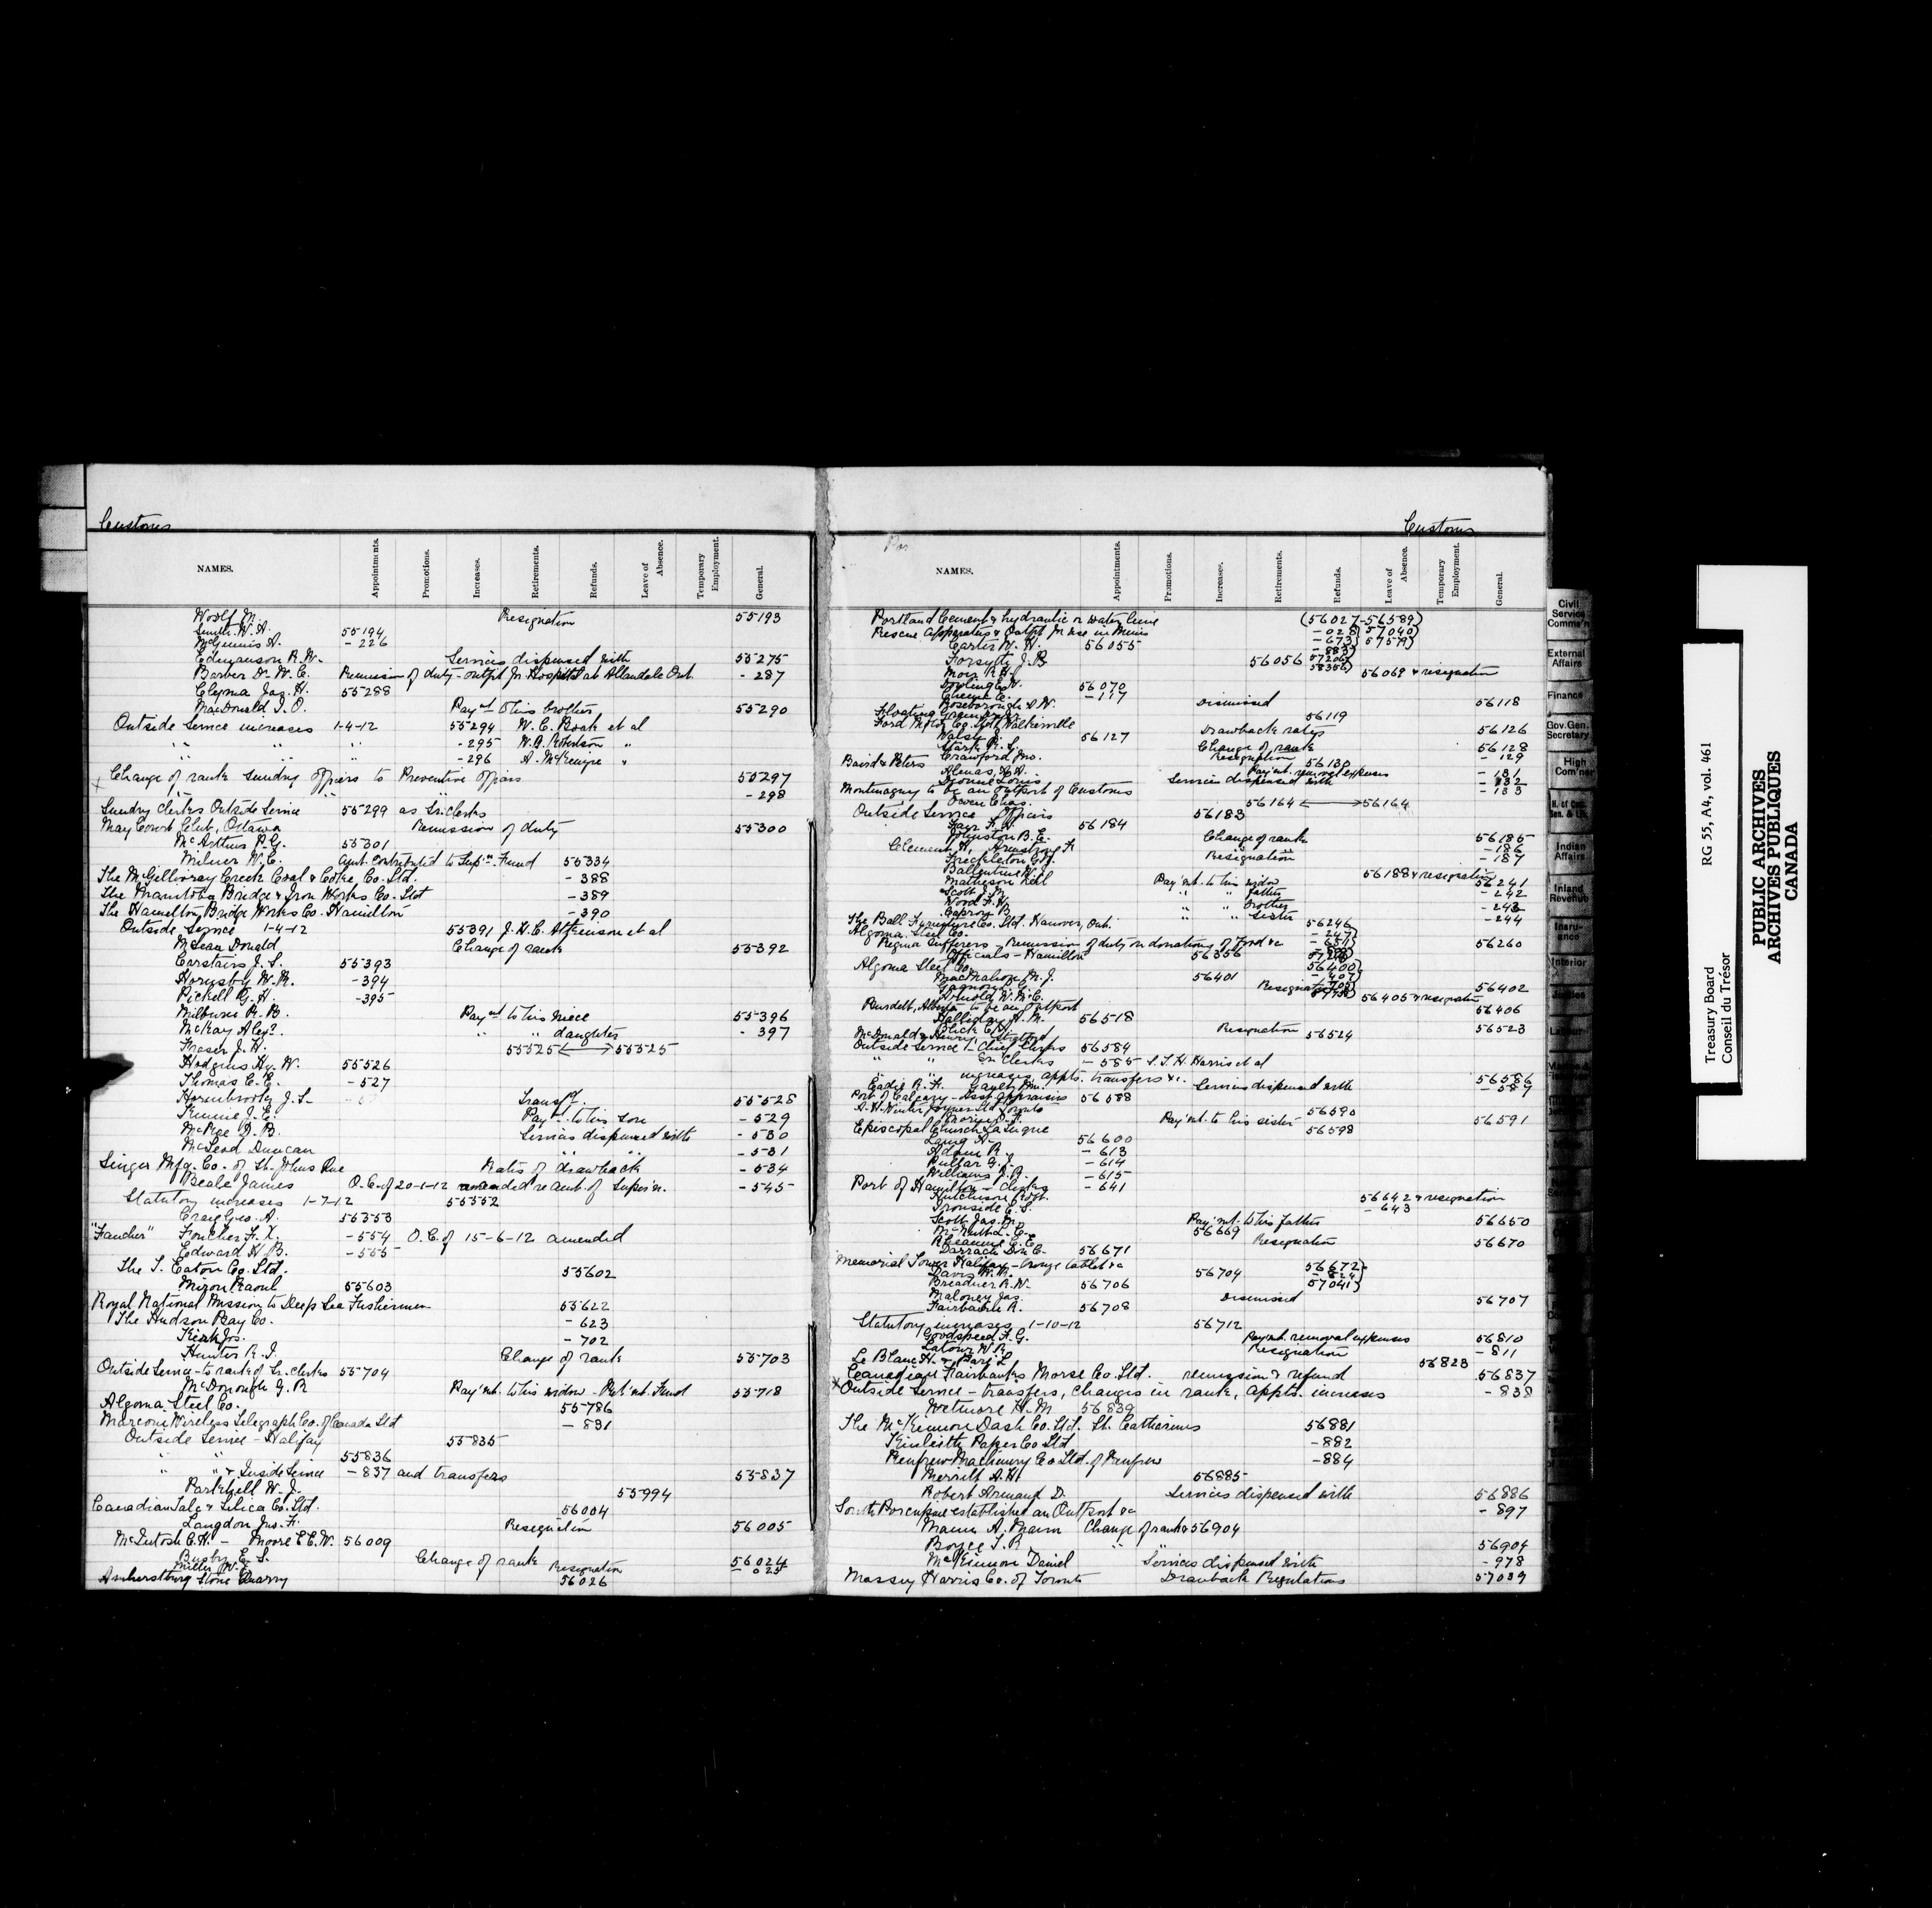 Customs
NAMES. Appointments. Promotions. Increases. Retirements. Refunds. Leave of Absence. Temporary Employment. General.
Woolf M. Resignation 55193
Smith W. A. 55194
McGinnis A. - 226
Edmanson R. W. Services dispensed with 55275
Barber D. W. C. Remission of duty - outfit for Hospital at Allandale Ont. - 287
Clyma Jas. H. 55288
MacDonald I. O. Paymt to his brother 55290
Outside Service increases 1-4-12 55294 W. C. Boak et al
" " " - 295 W. B. Robertson "
" " " - 296 A. McKenzie "
x Change of rank sundry officers to Preventive officers 55297
" " - 298
Sundry Clerks Outside Service 55299 as Sr. Clerks
May Court Club, Ottawa Remission of duty 55300
McArthur P. G. 55301
Milner W. C. Amt. contributed to Supn Fund 55334
The McGillivray Creek Coal & Coke Co. Ltd. - 388
The Manitoba Bridge & Iron Works Co. Ltd - 389
The Hamilton Bridge Works Co. Hamilton - 390
Outside Service 1-4-12 55391 J. H. C. Atkinson et al
McLean Donald Change of rank 55392
Carstairs J. S. 55393
Hornsby W. R. - 394
Pickell G. H. - 395
Milburn R. B. Paymt to his niece 55396
McKay Alexr. " " daughter - 397
Fraser J. H. 55525 ←→ 55525
Hodgins Hy. W. 55526
Thomas C. E. - 527
Hornbrooke J. L. Transfr. 55528
Kinnie J. E. Paymt to his son - 529
McKee D. B. Services dispensed with - 530
McLeod Duncan " " - 531
Singer Mfg. Co. of St. Johns Que Rates of drawback - 534
Beale James O. C. of 20-1-12 amended re amt. of Super'n. - 545
Statutory increases 1-7-12 55552
Craig Geo. A. 55553
"Faucher" Foucher F. X. - 554 O. C. of 15-6-12 amended
Edward H. B. - 555
The T. Eaton Co. Ltd. 55602
Miron Raoul 55603
Royal National Mission to Deep Sea Fishermen 55622
The Hudson Bay Co. - 623
Kirk Jos. - 702
Hunter R. J. Change of rank 55703
Outside Service - to rank of Sr. clerks 55704
McDonough G. R. Pay'mt. to his widow - Ret'mt. Fund 55718
Algoma Steel Co. 55786
Marconi Wireless Telegraph Co. of Canada Ltd - 831
Outside Service - Halifax 55835
" " 55836
" " & Inside Service - 837 and transfers 55837
Parkhill W. J. 55994
Canadian Talc & Silica Co. Ltd. 56004
Langdon Jno. F. Resignation 56005
McIntosh C. H. - Moore E. C. W. 56009
Busby E. S. Change of rank 56024
Miller W. E. Resignation - 025
Amherstburg Stone Quarry 56026
Customs
Por
NAMES. Appointments. Promotions. Increases. Retirements. Refunds. Leave of Absence. Temporary Employment. General.
Portland Cement & hydraulic or water lime (56027-56589)
Rescue Apparatus & Outfit for use in Mines - 028) 57040)
Carter W. H. 56055 - 673) 57579)
Forsyth J. B. 56056
Moir R. H. 56069 & resignation
Dowling 56070
Greene C. - 117
Roseborough S. W. Dismissed 56118
56119
Ford Motor Co. Ltd. Walkerville Drawback rates 56126
Walsh 56127
Stark R. S. Change of rank 56128
Crawford Jno. Resignation - 129
Baird & Peters 56130
Pay'mt. removal expenses - 131
Dionne Louis Services dispensed with - 132
Montmagny to be an outport of Customs - 133
Owen Chas. 56164 ←→ 56164
Outside Service officers 56183
56184
Johnston B. E. Change of rank 56185
Clement H., Armstrong F. - 186
Freckleton Resignation - 187
Ballentine W. J. 56188 & resignation
Matheson Neil Pay'mt. to his widow 56241
Scott J. M. " " father - 242
Wood F. H. " " brother - 243
" " sister - 244
The Ball Furniture Co. Ltd. Hanover, Ont. 56246
Algoma Steel Co. - 247)
Regina Sufferers - remission of duty on donations of Food &c - 681) 56260
Officials - Hamilton 56356
Algoma Steel Co. 56400)
MacMahon M. J. 56401 - 407)
Gagnon Resignation 56402
Arnold W. McC. 56405 & resignation
Burdett, Alberta to be an outport 56406
Halliday H. M. 56518
Resignation 56523
McDonald & Henry, Stratford 56524
Outside Service - Chief Clerks 56584
" " Sr. Clerks - 585 S. T. H. Harris et al
" " increases, appts. transfers &c. 56586
Eadie R. H. Services dispensed with - 587
Port of Calgary - Asst. appraisers 56588
A. H. Winter Joyner Ltd Toronto 56590
Pay'mt. to his sister 56591
Episcopal Church La Tuque 56598
Laing A. 56600
Adam R. - 613
Pullar G. J. - 614
Williams J. R. - 615
Port of Hamilton - Clerks - 641
Hutchison Robt. 56642 & resignation
Ironside C. S. - 643
Scott Jas. M. Pay'mt. to his father 56650
McNutt L. C. 56669
Rheaume E. E. Resignation 56670
Darrach 56671
Memorial Tower Halifax - bronze tablet &c 56672)
Davis W. H. 56704 - 824)
Breadner R. W. 56706 57041)
Maloney Jas. Dismissed 56707
Fairbairn R. 56708
Statutory increases 1-10-12 56712
Goodspeed F. G. Pay'mt. removal expenses 56810
Latour W. R. Resignation - 811
Le Blanc H. & Paré L. 56823
Canadian Fairbanks Morse Co. Ltd. remission & refund 56837
x Outside Service - transfers, changes in rank, appts. increases - 838
Wetmore H. M. 56839
The McKinnon Dash Co. Ltd. St. Catharines 56881
Kinleith Paper Co Ltd - 882
Renfrew Machinery Co Ltd. of Renfrew - 884
Merrill A. H. 56885
Robert Armand D. Services dispensed with 56886
South Porcupine established an Outport &c - 897
Mann A. Mann Change of rank & 56904
Boyce T. R. " " 56904
McKinnon Daniel Services dispensed with - 978
Massey Harris Co. of Toronto Drawback Regulations 57039
Civil Service Comm'n
External Affairs
Finance
Gov. Gen. Secretary
High Com'ner
H. of Com. Sen. & Lib.
Indian Affairs
Inland Revenue
Insurance
Interior
Justice
Labour
RG 55, A4, vol. 461
Treasury Board
Conseil du Trésor
PUBLIC ARCHIVES
ARCHIVES PUBLIQUES
CANADA